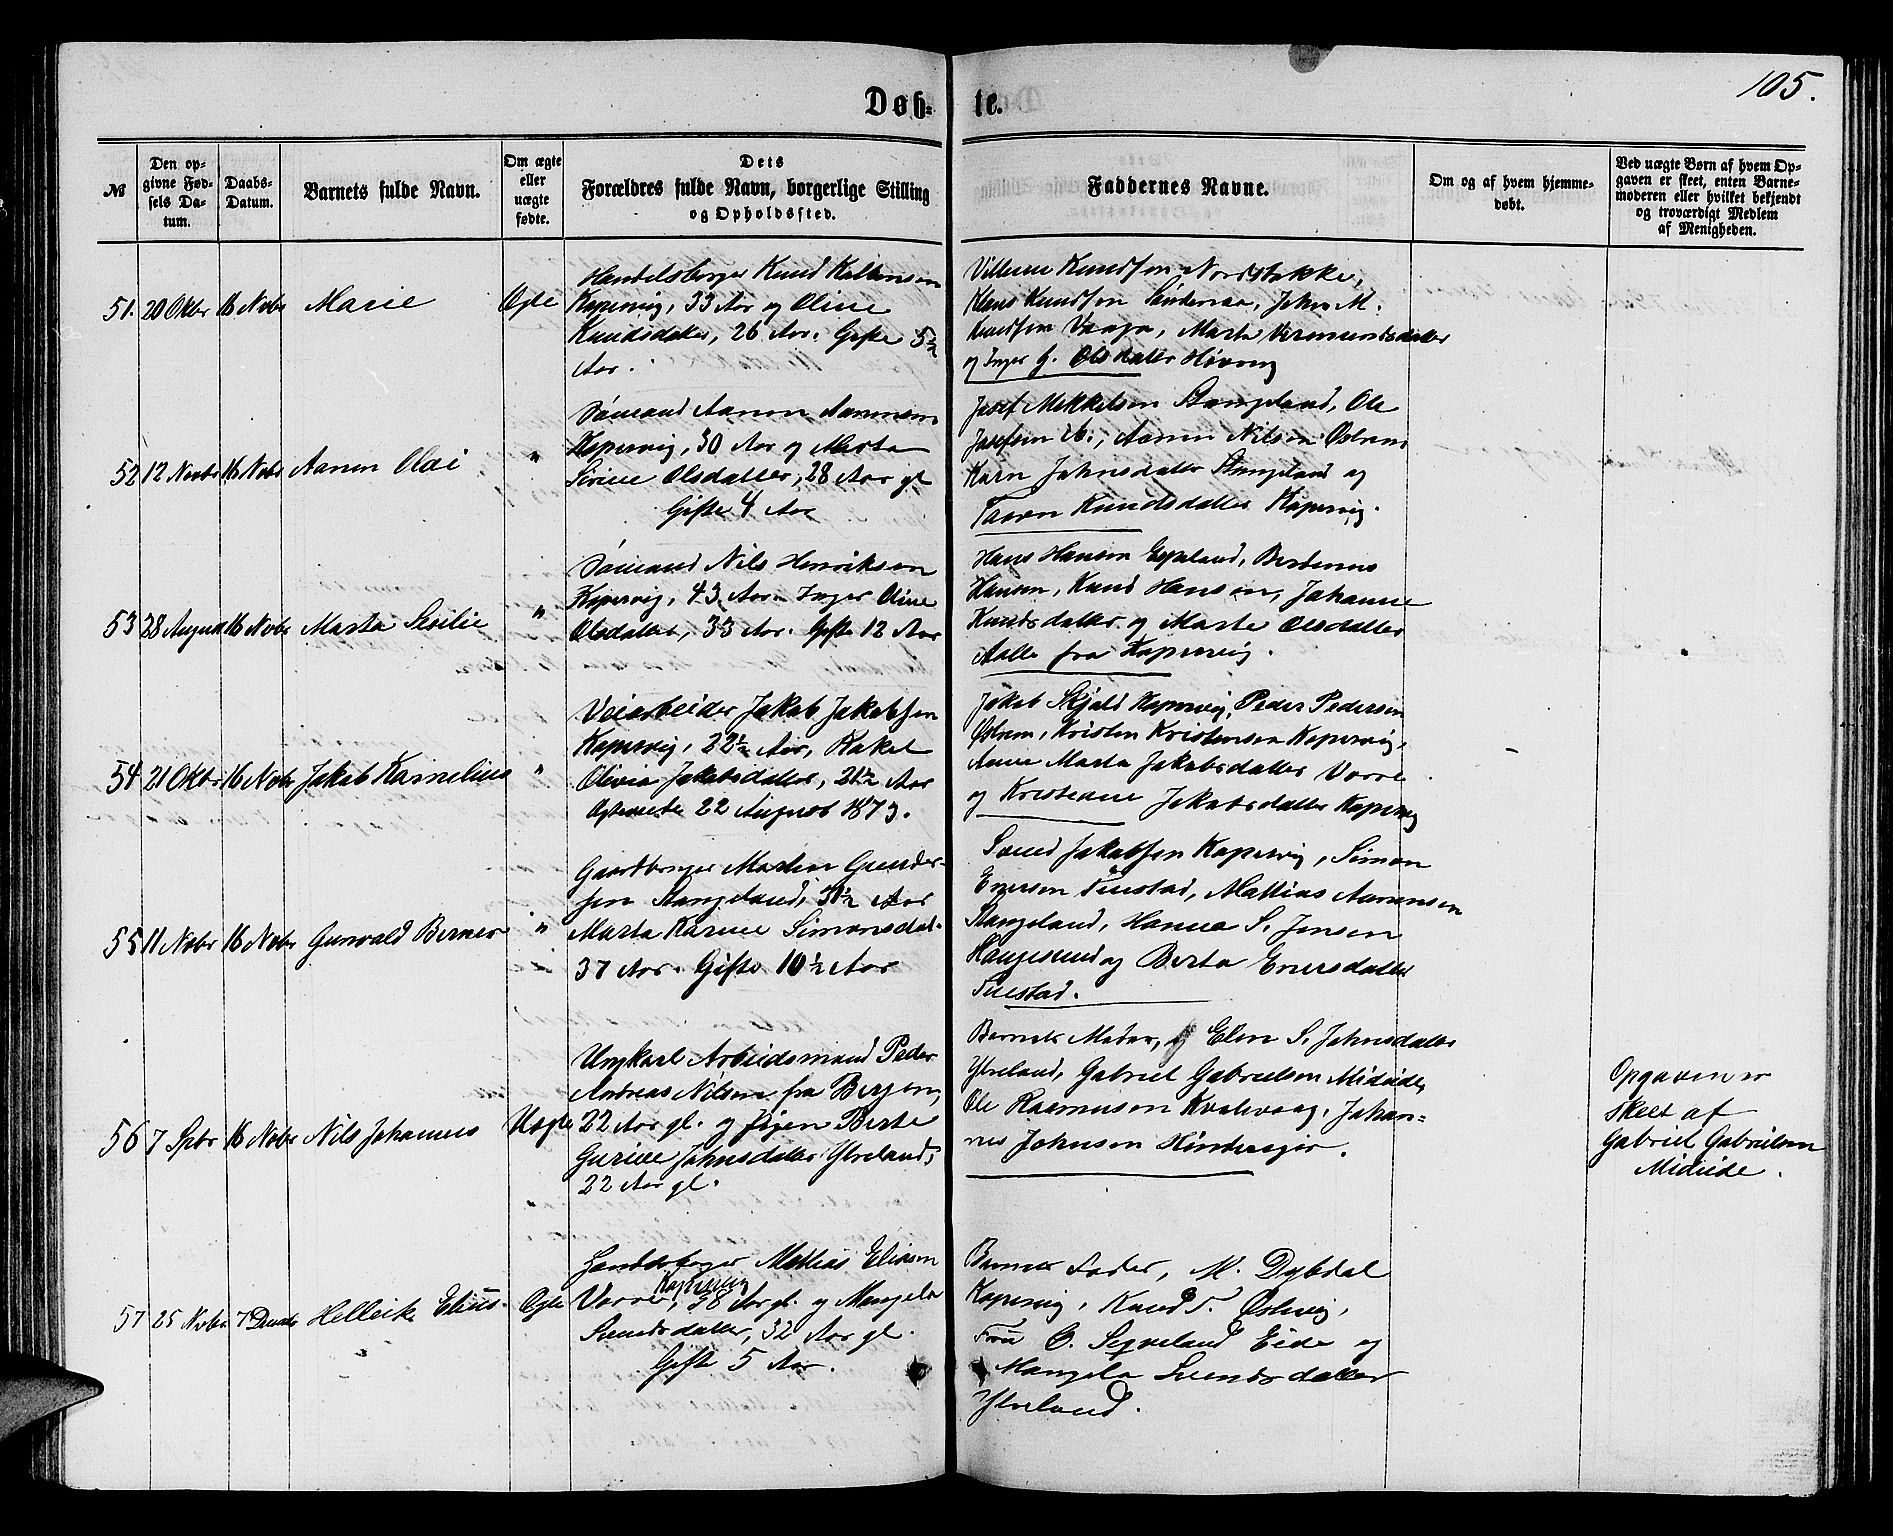 105.
Døb-te.
№
Den op-
givne Fød-
sels Da-
tum.
Daabs-
Datum.
Barnets fulde Navn.
Om ægte
eller
uægte
fødte.
Dets
Forældres fulde Navn, borgerlige Stilling
og Opholdssted.
Faddernes Navne.
Om og af hvem hjemme-
døbt.
Ved uægte Børn af hvem Op-
gaven er skeet, enten Barne-
moderen eller hvilket bekjendt
og troværdigt Medlem
af Menigheden.
51. 20 Oktbr 16 Novbr Marie Ægte
Handelsborger Knud
Kopervig, 33 Aar og Oline
Knudsdatter, 26 Aar. Gifte 5½
Aar.
Villum Knudsen Nordstokke,
Hans Knudsen Sindernaa, John M.
Knudsen Vaaga, Marta Vermundsdatter
og Inger G. Olsdatter Høvring
52 12 Novbr 16 Novbr Aanen Olai "
Sømand Aanen Aanensen
Kopervig, 30 Aar og Marta
Serine Olsdatter, 28 Aar gl
Gifte 4 Aar
Josef Mikkelsen Stangeland, Ole
Josefsen ib., Aanen Nilsen Østrem
Karn Johnsdatter Stangeland og
Taarn Knudsdatter Kopervig.
53 28 August 16 Novbr Marta Sesilie "
Sømand Nils Henriksen
Kopervig, 43 Aar Inger Oline
Olsdatter, 33 Aar. Gifte 12 Aar
Hans Hansen Eepeland, Berdinus
Hansen, Knud Hansen, Johanne
Knudsdatter og Marte Olsdatter
Aalle fra Kopervig.
54 21 Oktbr 16 Novbr Jakob Kornelius "
Veiarbeider Jakob Jakobsen
Kopervig, 22½ Aar, Rakel
Olivia Jakobsdatter, 21½ Aar
Egteviede 22 August 1873.
Jakob Skjold Kopervig, Peder Pedersen
Østrem, Kristen Kristensen Kopervig,
Anne Marta Jakobsdatter Vorre
og Kristiane Jakobsdatter Kopervig
55 11 Novbr 16 Novbr Gunvald Berner "
Gaardbruger Martin Gunder-
sen Stangeland, 31½ Aar
Marta Karine Simonsdat.
37 Aar. Gifte 10½ Aar
Svend Jakobsen Kopervig, Simon
Enersen Tuestad, Mattias Aanensen
Stangeland, Hanna S. Jensen
Haugesund og Berta Enersdatter
Tuestad.
56 7 Sptbr 16 Novbr Nils Johannes Uægte
Ungkarl Arbeidsmand Peder
Andreas Nilsen fra Bergen,
22 Aar gl. og Pigen Berte
Gurine Johnsdatter Ytreland,
22 Aar gl.
Barnets Moder, og Elen S. Johnsdatter
Ytreland, Gabriel Gabrielsen Midtide,
Ole Rasmusen Kvalevaag, Johan-
nes Johnsen Hindersjør.
Opgaven er
skeet af
Gabriel Gabrielsen
Midtide.
57 25 Novbr 7 Decmb Helleik Elius. Ægte
Handelsborger Mattias Eliasen
Vorre, Kopervig, 38 Aar gl. og Mangela
Svendsdatter, 32 Aar gl.
Gifte 5 Aar.
Barnets Fader, M. Dybdal
Kopervig, Knud T. Østevig,
Frú C. Sqveland Eide og
Mangela Svendsdatter
Ytreland.